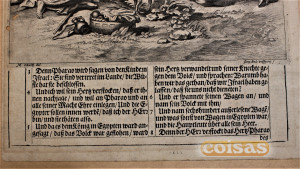 Denn Pharao wird sagen von den Kindern
Israel: Sie sind verirret im Lande/ die Wü-
ste hat sie beschlossen.
Und ich wil sein Hertz verstocken/ daß er ih-
nen nachjage/ und wil an Pharao und an
aller seiner Macht Ehre einlegen/ Und die
Egypter sollen innen werden/ daß ich der HErr
bin/ und sie
Und da es dem König in Egypten ward
angesagt/ daß das Volck war geflohen/ ward
sein Hertz verwandelt und seiner Knechte ge-
gen dem Volck/ und sprachen: Warum ha-
ben wir das gethan/ daß wir Israel haben
gelassen/ daß sie uns nicht dieneten?
6 Und er spannete seinen Wagen an/ und
nam sein Volck mit ihm;
7 Und nam sechshundert außerlesene Wagen/
und was sonst von Wagen in Egypten war/
und die Hauptleute über alle sein Heer.
8 Denn der HErr verstockt das Hertz Pharao
des
coisas